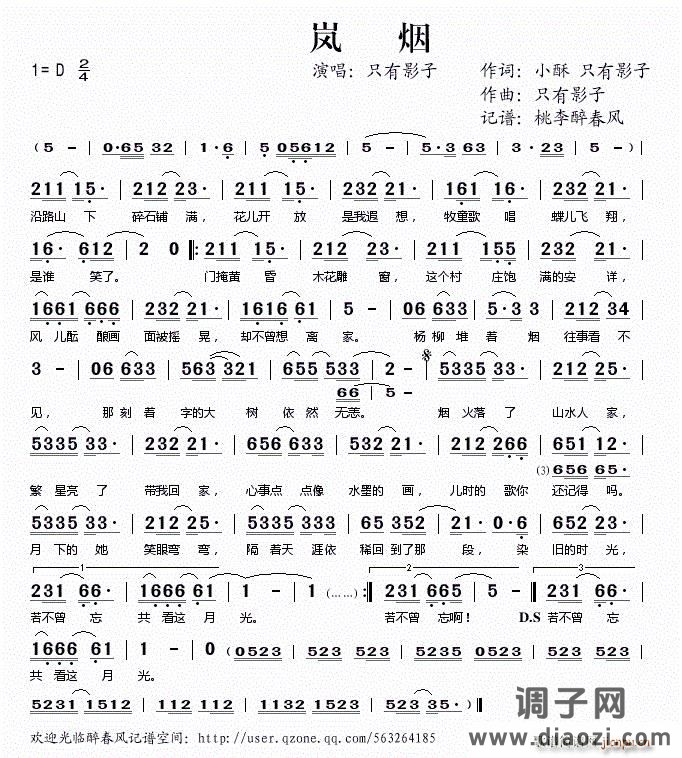 岚 烟
1=D 2/4 演唱：只有影子 作词：小酥 只有影子
作曲：只有影子
记谱：桃李醉春风
( 5 - | 0·65 32 | 1·6 | 5 05612 | 5 - | 5·3 63 | 23· | 5 - )
211 15· | 212 23· | 211 15· | 212 23· | 161 16· | 232 21· |
沿路山 下 碎石铺 满， 花儿开 放 是我遐 想， 牧童歌 唱 蝶儿飞 翔，
16· 612 | 2 0 |: 211 15· | 212 23· | 211 155 | 212 23· |
是谁 笑了。 门掩黄 昏 木花雕 窗， 这个村 庄饱 满的安 详，
1661 666 | 232 21· | 1616 61 | 5 - | 06 633 | 5·3 33 | 212 34 |
风 儿酝 酿画 面被摇 晃， 却不曾想 离 家。 杨柳 堆 着 烟 往事看 不
3 - | 06 633 | 563 321 | 655 533 | 2 - 𝄋 | 5335 33· | 232 21· |
66 | 5 -
见， 那 刻 着 字的大 树 依 然 无恙。 烟 火落 了 山水人 家，
5335 33· | 232 21· | 656 633 | 232 21· | 212 266 | 651 12· |
(3) 656 65·
繁 星亮 了 带我回 家， 心事点 点像 水墨的 画， 儿时的 歌你 还记得 吗。
5335 33· | 212 25· | 535 533 | 65 352 | 21· 0·6 | 652 23· |
月 下的 她 笑眼弯 弯， 隔 着天 涯依 稀回 到了那 段， 染 旧的时 光，
1 2 3
231 66· | 1666 61 | 1 - | 1 - | (……) :| 231 665 | 5 - :| 231 66· |
若不曾 忘 共 看这 月 光。 若不曾 忘啊！ D.S 若不曾 忘
1666 61 | 1 - | 0 0523 | 523 0523 | 523 0523 | 523 523 |
共 看这 月 光。
5231 1512 | 112 112 | 1132 1512 | 523 523 | 523 35· )|
欢迎光临醉春风记谱空间：http://user.qzone.qq.com/563264185
调子网
www.diaozi.com